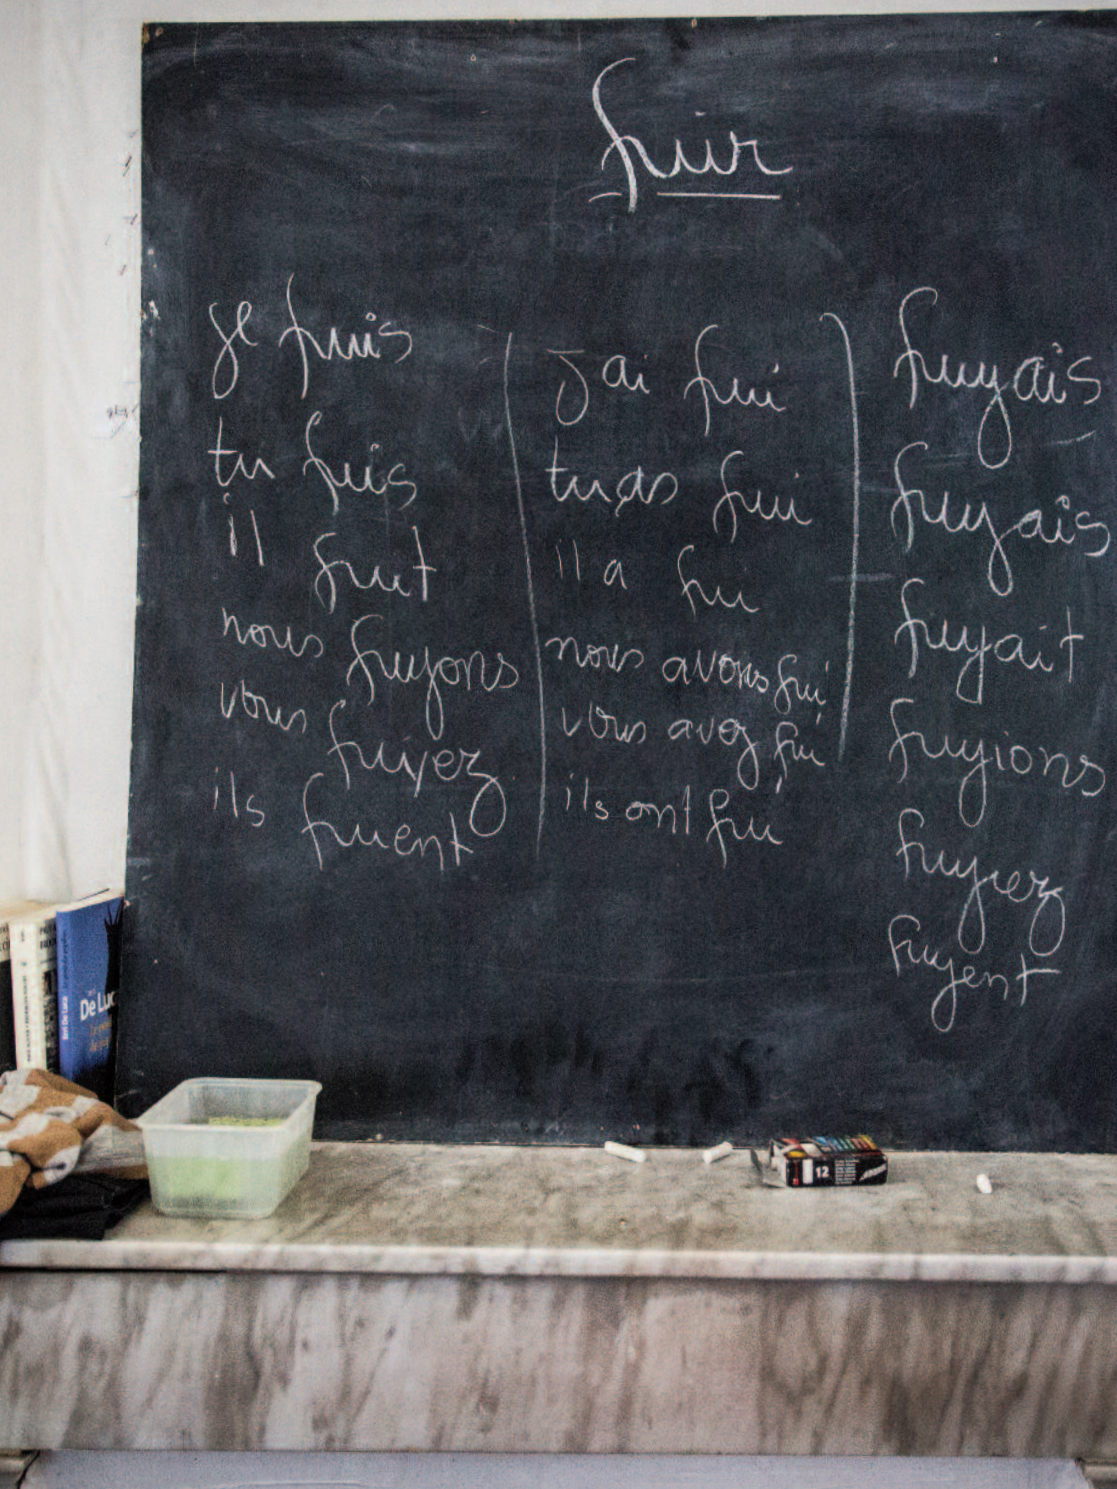 fuir
je fuis
tu fuis
il fuit
nous fuyons
vous fuiyez
ils fuient
j'ai fui
tu as fui
il a fui
nous avons fui
vous avez fui
ils ont fui
fuyais
fuyais
fuyait
fuyions
fuyiez
fuyent
De Luc
Erri De Luca
12